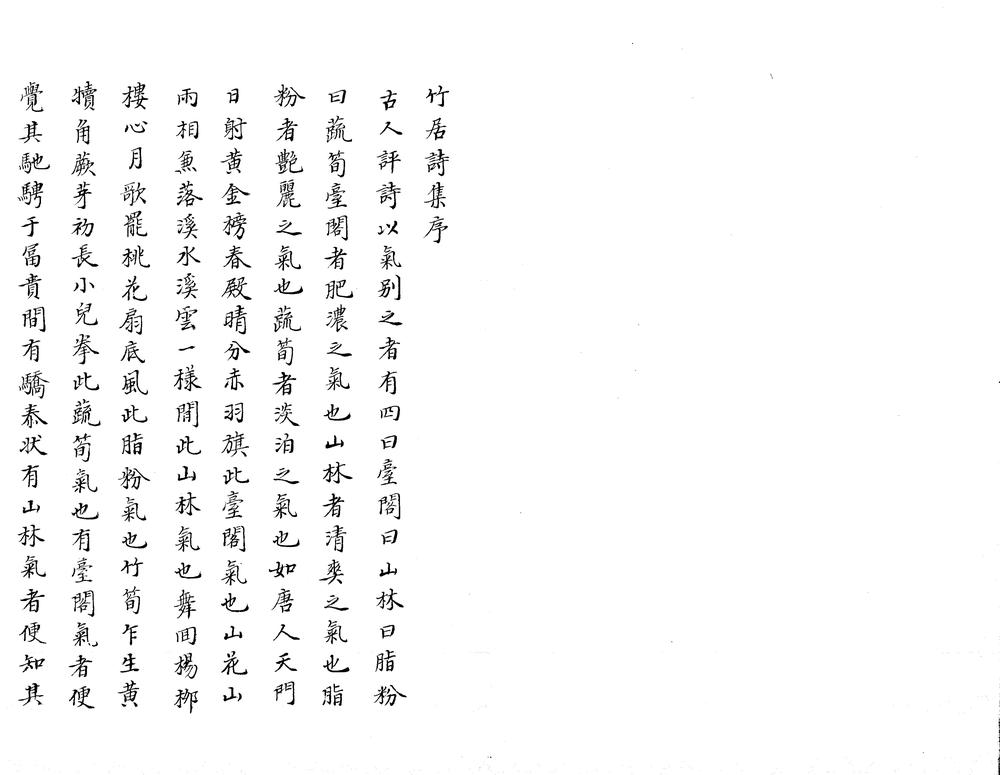 竹居詩集序
古人評詩以氣别之者有四曰臺閣曰山林曰脂粉
曰蔬筍臺閣者肥濃之氣也山林者清爽之氣也脂
粉者艷麗之氣也蔬荀者淡泊之氣也如唐人天門
日射黄金榜春殿晴分赤羽旗此臺閣氣也山花山
雨相兼落溪水溪雲一様閒此山林氣也舞回楊栁
樓心月歌罷桃花扇底風此脂粉氣也竹筍乍生黄
犢角蕨芽初長小兒拳此蔬筍氣也有臺閣氣者便
覺其馳騁于冨貴間有驕泰状有山林氣者便知其